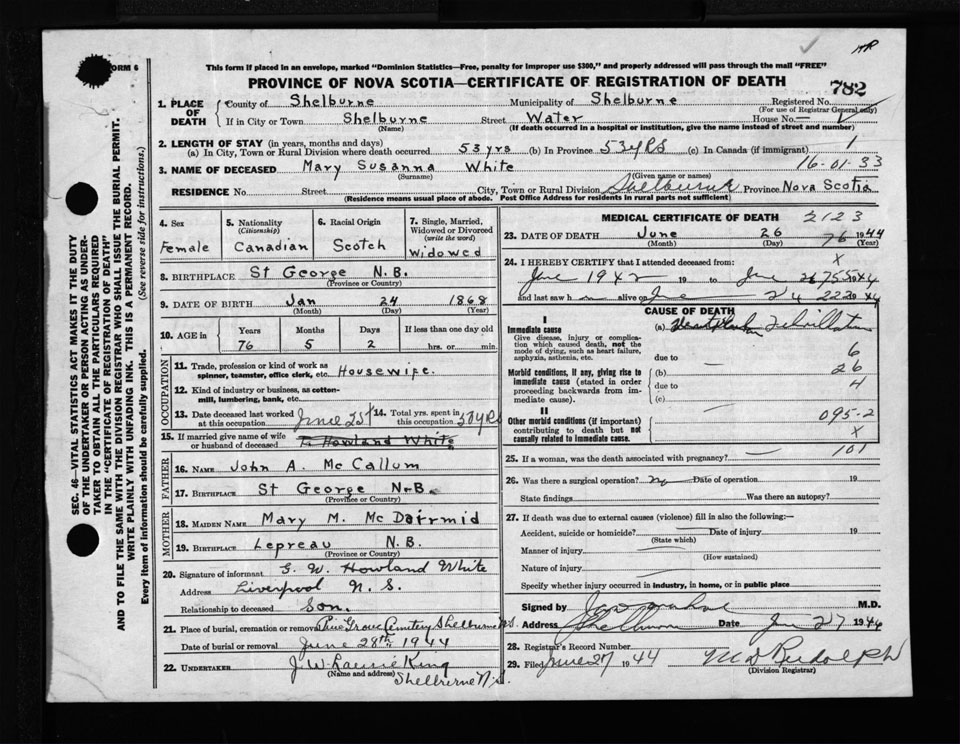 FORM 6
This form if placed in an envelope, marked "Dominion Statistics—Free, penalty for improper use $300," and properly addressed will pass through the mail "FREE"
PROVINCE OF NOVA SCOTIA—CERTIFICATE OF REGISTRATION OF DEATH
782
1. PLACE OF DEATH County of Shelburne Municipality of Shelburne Registered No.
(For use of Registrar General only)
If in City or Town Shelburne Street Water House No. —
(Name) (If death occurred in a hospital or institution, give the name instead of street and number)
2. LENGTH OF STAY (in years, months and days)
(a) In City, Town or Rural Division where death occurred 53 yrs (b) In Province 53 yrs (c) In Canada (if immigrant) 1
16-01-33
3. NAME OF DECEASED Mary Susanna White
(Surname) (Given name or names)
RESIDENCE No. Street City, Town or Rural Division Shelburne Province Nova Scotia
(Residence means usual place of abode. Post Office Address for residents in rural parts not sufficient)
4. Sex Female
5. Nationality (Citizenship) Canadian
6. Racial Origin Scotch
7. Single, Married, Widowed or Divorced (write the word) Widowed
8. BIRTHPLACE St George N.B.
(Province or Country)
9. DATE OF BIRTH Jan 24 1868
(Month) (Day) (Year)
10. AGE in Years Months Days If less than one day old
76 5 2 hrs. or min.
OCCUPATION
11. Trade, profession or kind of work as spinner, teamster, office clerk, etc. Housewife.
12. Kind of industry or business, as cotton-mill, lumbering, bank, etc.
13. Date deceased last worked at this occupation June 25th 14. Total yrs. spent in this occupation 50 yrs
15. If married give name of wife or husband of deceased T. Howland White
FATHER
16. NAME John A. McCallum
17. BIRTHPLACE St George N.B.
(Province or Country)
MOTHER
18. MAIDEN NAME Mary M. McDairmid
19. BIRTHPLACE Lepreau N.B.
(Province or Country)
20. Signature of informant G. W. Howland White
Address Liverpool N.S.
Relationship to deceased Son.
21. Place of burial, cremation or removal Pine Grove Cemetery Shelburne N.S.
Date of burial or removal June 28th 1944
22. UNDERTAKER J. W. Laurie King
(Name and address) Shelburne N.S.
MEDICAL CERTIFICATE OF DEATH 2123
23. DATE OF DEATH June 26 1944
(Month) (Day) 76 (Year)
24. I HEREBY CERTIFY that I attended deceased from: x
June 1942 19 to June 26 1944
and last saw h alive on June 24 222 1944
CAUSE OF DEATH
I
Immediate cause
Give disease, injury or complication which caused death, not the mode of dying, such as heart failure, asphyxia, asthenia, etc.
(a)
due to 6
Morbid conditions, if any, giving rise to immediate cause (stated in order proceeding backwards from immediate cause).
(b) — 26
due to 4
(c)
II
Other morbid conditions (if important) contributing to death but not causally related to immediate cause.
095-2
x
101
25. If a woman, was the death associated with pregnancy? —
26. Was there a surgical operation? no Date of operation 19
State findings Was there an autopsy?
27. If death was due to external causes (violence) fill in also the following:—
Accident, suicide or homicide? Date of injury 19
(State which)
Manner of injury
(How sustained)
Nature of injury
Specify whether injury occurred in industry, in home, or in public place
Signed by M.D.
Address Shelburne Date June 27 1944
28. Registrar's Record Number
29. Filed June 27 1944 M D Rudolph
(Division Registrar)
SEC. 46—VITAL STATISTICS ACT MAKES IT THE DUTY
OF THE UNDERTAKER OR PERSON ACTING AS UNDER-
TAKER TO OBTAIN ALL THE PARTICULARS REQUIRED
IN THE "CERTIFICATE OF REGISTRATION OF DEATH"
AND TO FILE THE SAME WITH THE DIVISION REGISTRAR WHO SHALL ISSUE THE BURIAL PERMIT.
WRITE PLAINLY WITH UNFADING INK. THIS IS A PERMANENT RECORD.
Every item of information should be carefully supplied. (See reverse side for instructions.)